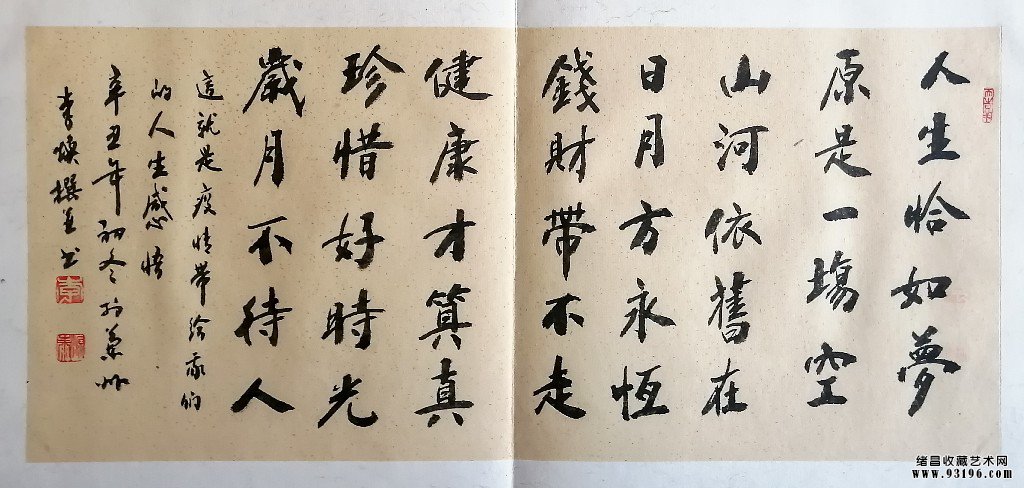 人生恰如夢
原是一場空
山河依舊在
日月方永恆
錢財帶不走
健康才算真
珍惜好時光
歲月不待人
這就是疫情帶給我们
的人生感悟
辛丑年初冬於蘭州
李焕撰並书
绪昌收藏艺术网
www.93196.com